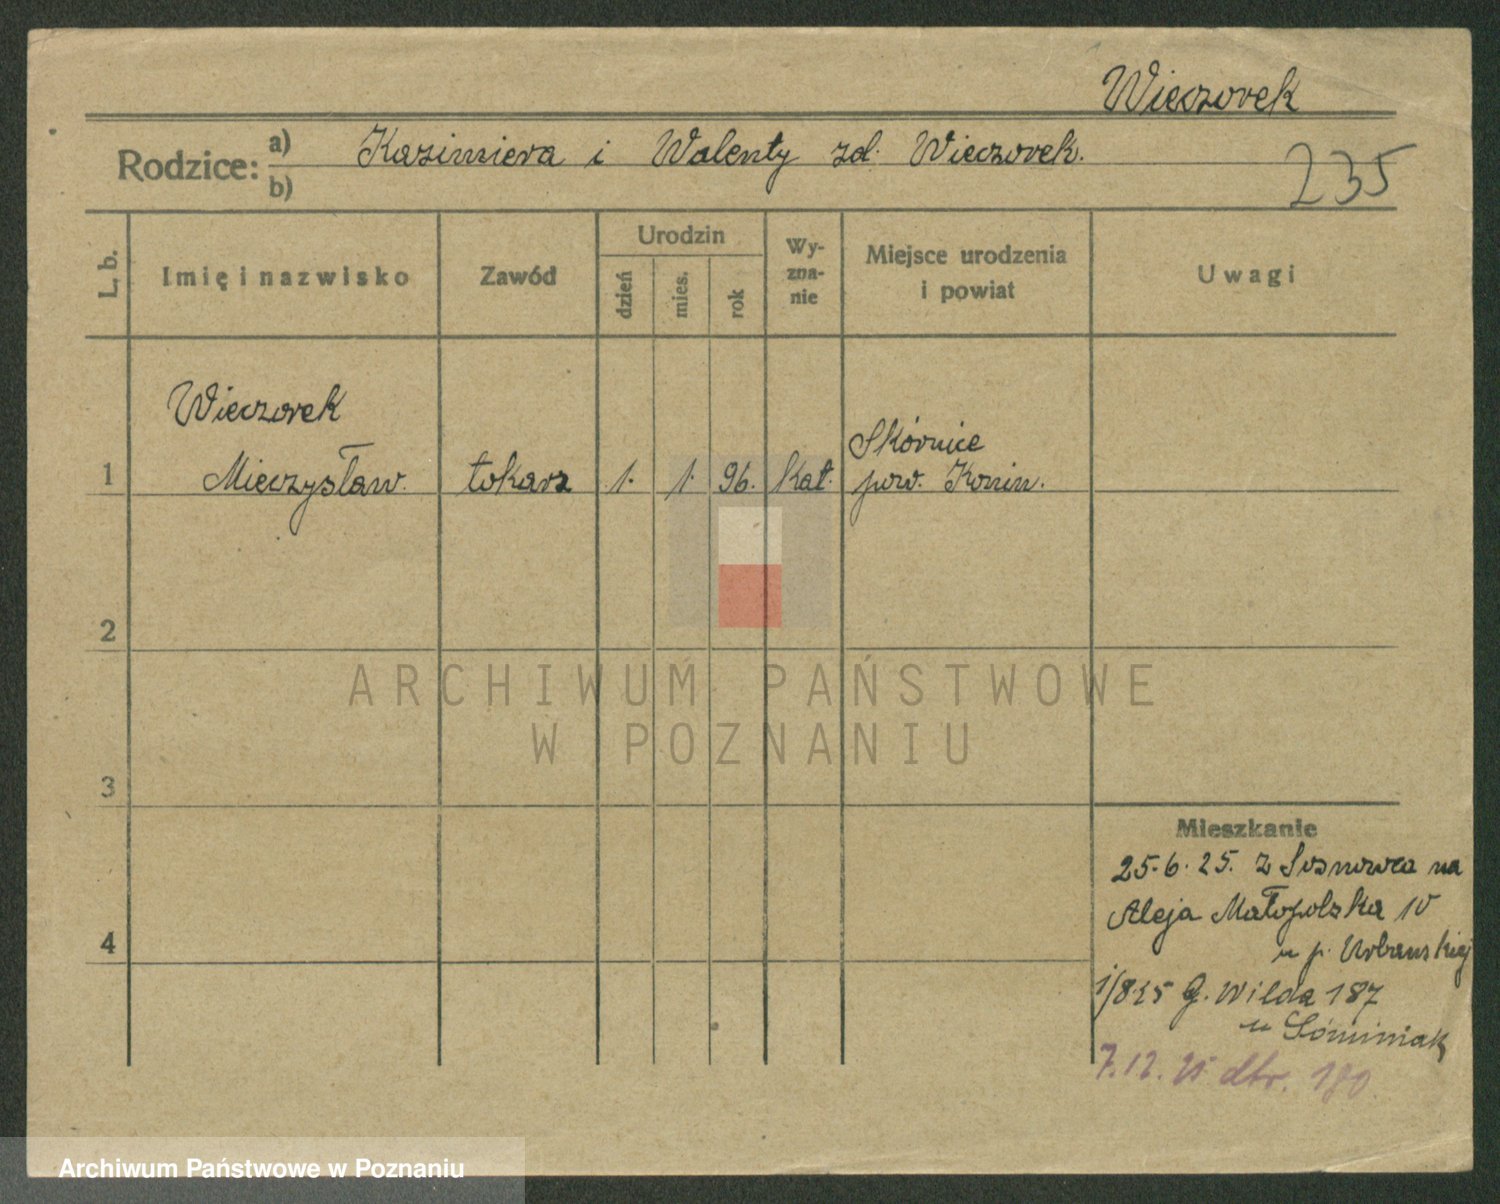 Wieczorek
Rodzice: a) Kazimiera i Walenty zd. Wieczorek.
b)
235
L. b.
Imię i nazwisko
Zawód
Urodzin
dzień
mies.
rok
Wy-
zna-
nie
Miejsce urodzenia
i powiat
Uwagi
Wieczorek
1 Mieczysław. tokarz 1. 1. 96. kat.
Skórnice
pow. Konin.
2
3
4
ARCHIWUM PAŃSTWOWE
W POZNANIU
Mieszkanie
25.6.25. z Sosnowca na
Aleja Małopolska 10
u p. Urbańskiej
1/8 25 G. Wilda 187
u
7.12.25 dto. 180.
Archiwum Państwowe w Poznaniu